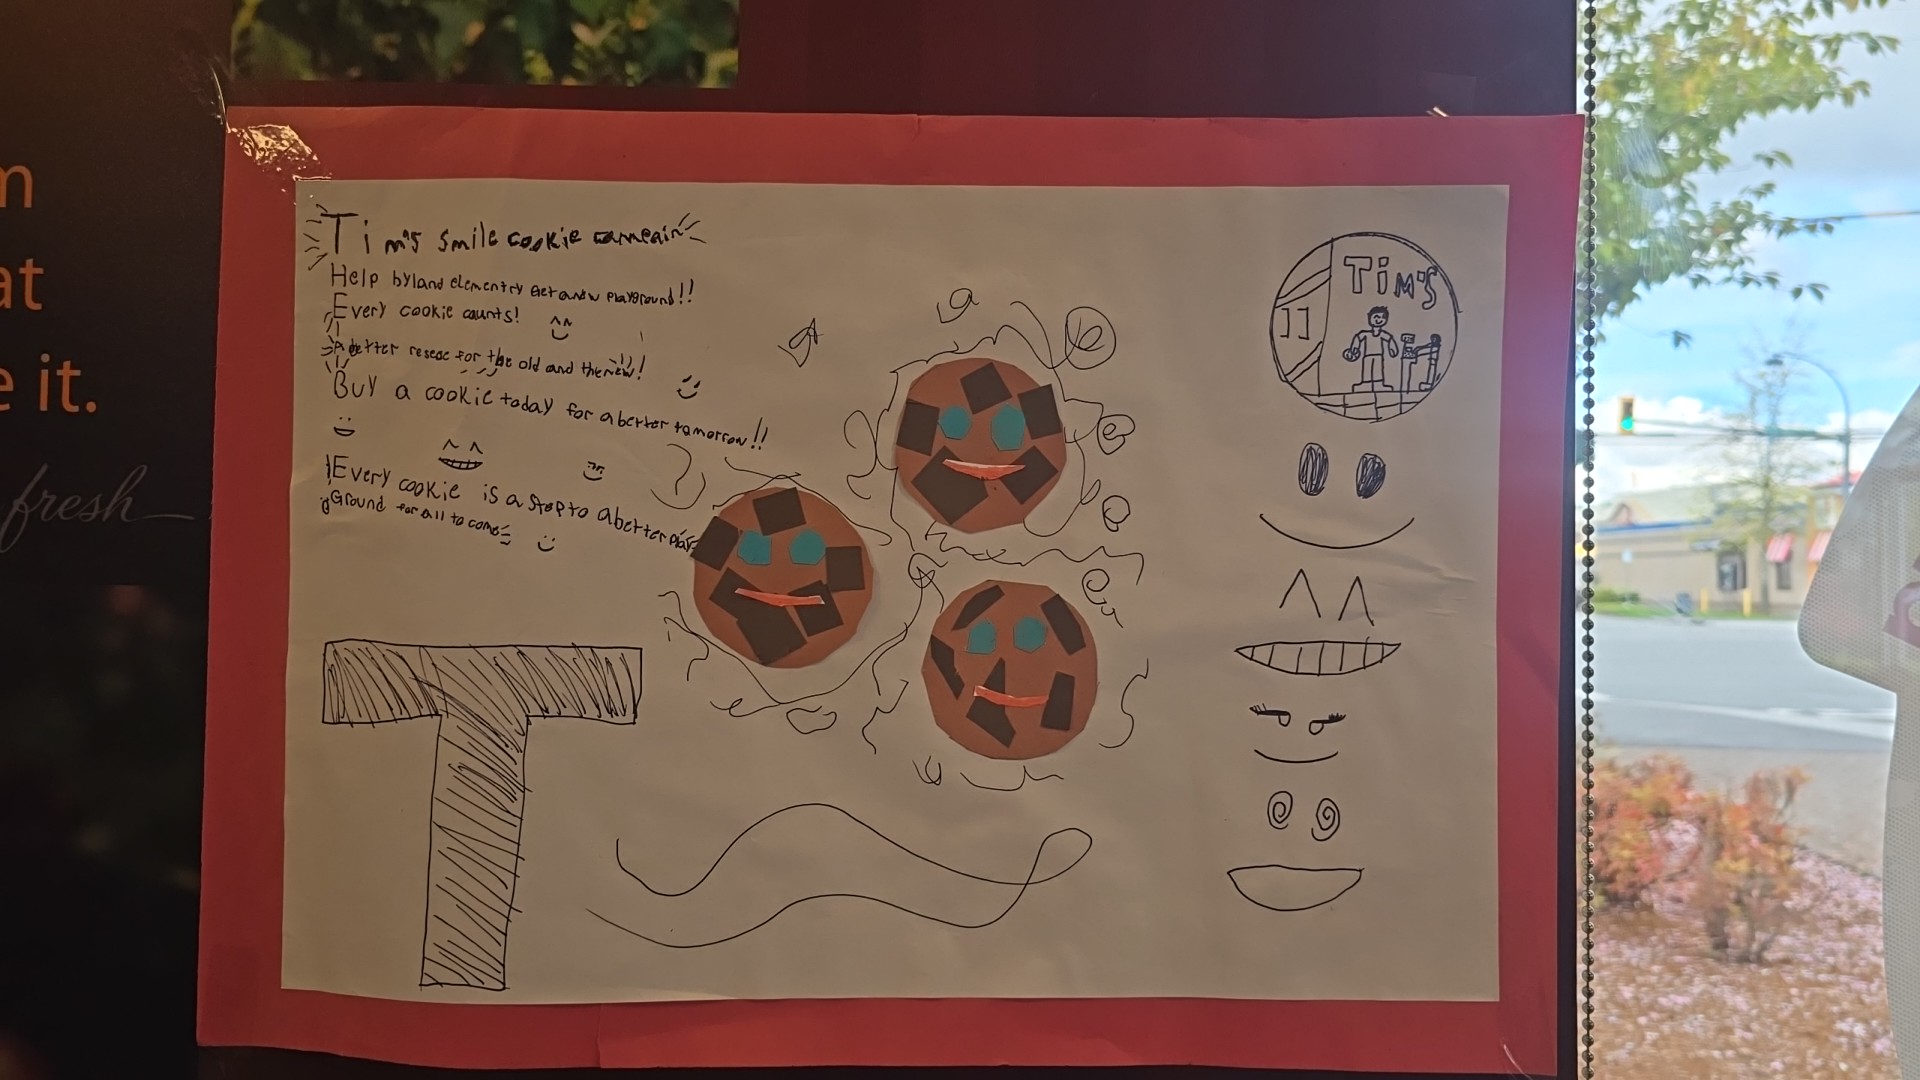 m
at
e it.
fresh
Tim's smile cookie cameain
Help byland elementry Get anew playground!!
Every cookie counts!
A better resesc for the old and the new!!!
Buy a cookie today for a better tomorrow!!
Every cookie is a step to a better play
Ground for all to come
TiM'S
T